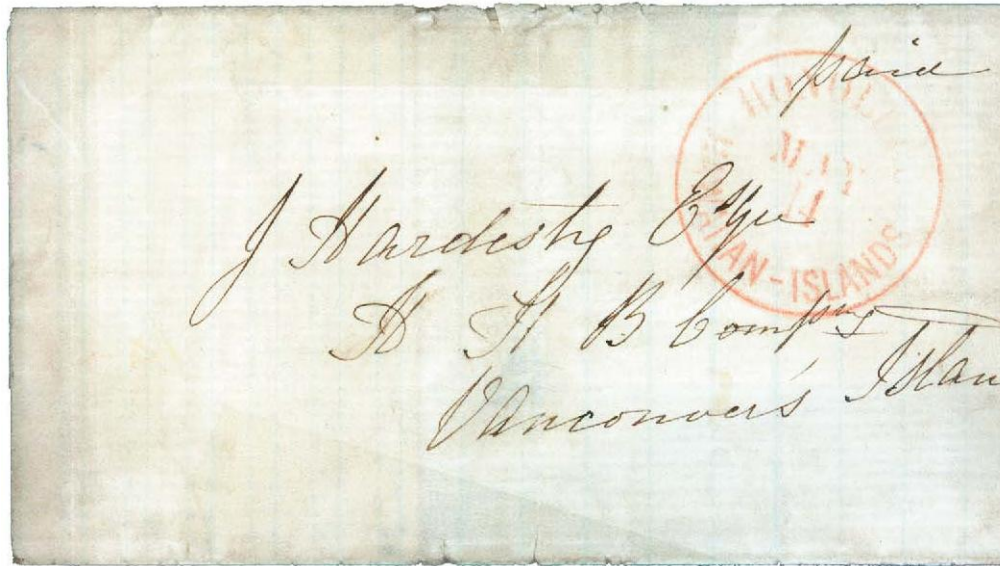 paid
HONOLU
MAY
11
HAWAIIAN-ISLANDS
J Hardesty Esqu
H H B Compys
Vancouvers Islan